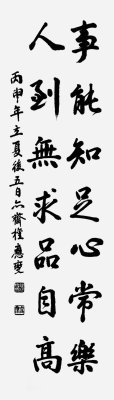 事能知足心常樂
人到無求品自高
丙申年立夏後五日六齋